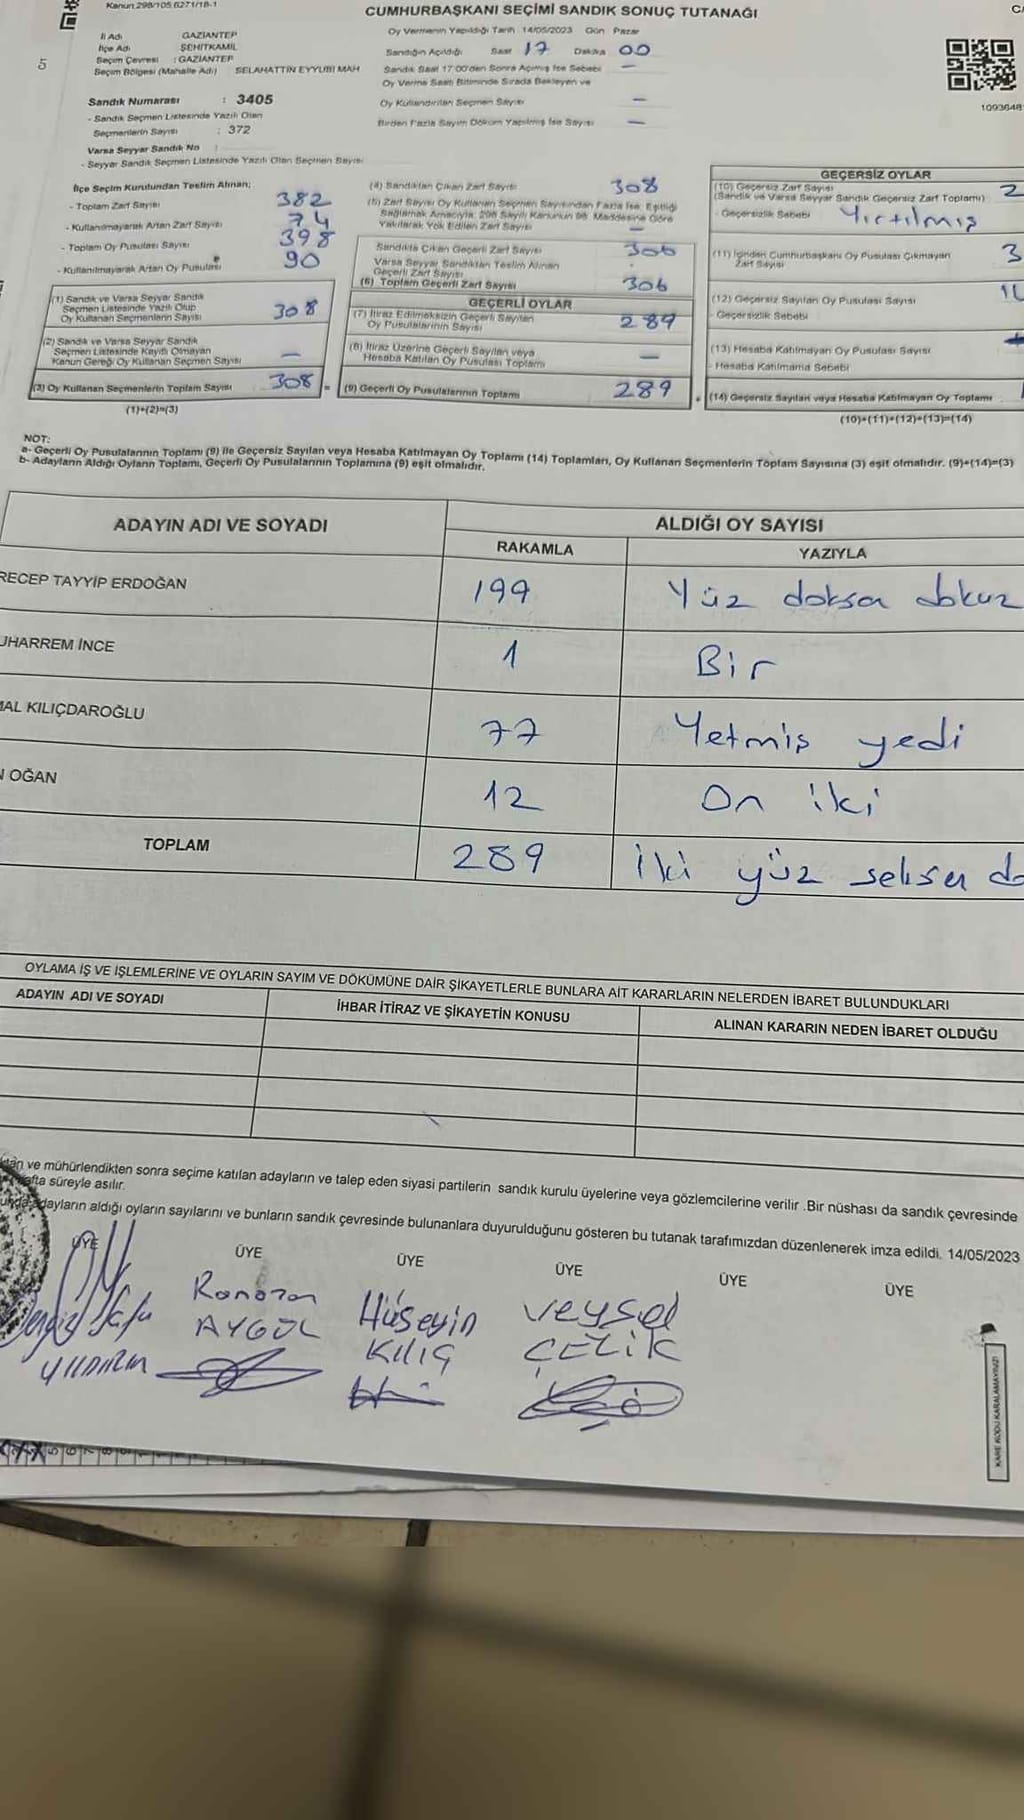 Kanun 298/105,6271/18-1
CUMHURBAŞKANI SEÇİMİ SANDIK SONUÇ TUTANAĞI
5
İl Adı GAZİANTEP
İlçe Adı ŞEHİTKAMİL
Seçim Çevresi : GAZİANTEP
Seçim Bölgesi (Mahalle Adı) SELAHATTİN EYYUBİ MAH
Sandık Numarası : 3405
- Sandık Seçmen Listesinde Yazılı Olan
Seçmenlerin Sayısı : 372
Varsa Seyyar Sandık No :
- Seyyar Sandık Seçmen Listesinde Yazılı Olan Seçmen Sayısı
Oy Vermenin Yapıldığı Tarih 14/05/2023 Gün Pazar
Sandığın Açıldığı Saat 17 Dakika 00
Sandık Saat 17:00'den Sonra Açılmış İse Sebebi —
Oy Verme Saati Bitiminde Sırada Bekleyen ve
Oy Kullandırılan Seçmen Sayısı —
Birden Fazla Sayım Döküm Yapılmış İse Sayısı —
1093648
İlçe Seçim Kurulundan Teslim Alınan;
- Toplam Zarf Sayısı 382
- Kullanılmayarak Artan Zarf Sayısı 74
- Toplam Oy Pusulası Sayısı 398
- Kullanılmayarak Artan Oy Pusulası 90
(1) Sandık ve Varsa Seyyar Sandık
Seçmen Listesinde Yazılı Olup
Oy Kullanan Seçmenlerin Sayısı 308
(2) Sandık ve Varsa Seyyar Sandık
Seçmen Listesinde Kayıtlı Olmayan
Kanun Gereği Oy Kullanan Seçmen Sayısı —
(3) Oy Kullanan Seçmenlerin Toplam Sayısı 308 =
(1)+(2)=(3)
(4) Sandıktan Çıkan Zarf Sayısı 308
(5) Zarf Sayısı Oy Kullanan Seçmen Sayısından Fazla İse, Eşitliği
Sağlamak Amacıyla, 298 Sayılı Kanunun 98. Maddesine Göre
Yakılarak Yok Edilen Zarf Sayısı —
Sandıkta Çıkan Geçerli Zarf Sayısı 306
Varsa Seyyar Sandıktan Teslim Alınan
Geçerli Zarf Sayısı
(6) Toplam Geçerli Zarf Sayısı 306
GEÇERLİ OYLAR
(7) İtiraz Edilmeksizin Geçerli Sayılan
Oy Pusulalarının Sayısı 289
(8) İtiraz Üzerine Geçerli Sayılan veya
Hesaba Katılan Oy Pusulası Toplamı —
(9) Geçerli Oy Pusulalarının Toplamı 289 +
GEÇERSİZ OYLAR
(10) Geçersiz Zarf Sayısı
(Sandık ve Varsa Seyyar Sandık Geçersiz Zarf Toplamı) 2
- Geçersizlik Sebebi Yırtılmış
(11) İçinden Cumhurbaşkanı Oy Pusulası Çıkmayan
Zarf Sayısı 3
(12) Geçersiz Sayılan Oy Pusulası Sayısı
- Geçersizlik Sebebi
(13) Hesaba Katılmayan Oy Pusulası Sayısı
- Hesaba Katılmama Sebebi
(14) Geçersiz Sayılan veya Hesaba Katılmayan Oy Toplamı
(10)+(11)+(12)+(13)=(14)
NOT:
a- Geçerli Oy Pusulalarının Toplamı (9) ile Geçersiz Sayılan veya Hesaba Katılmayan Oy Toplamı (14) Toplamları, Oy Kullanan Seçmenlerin Toplam Sayısına (3) eşit olmalıdır. (9)+(14)=(3)
b- Adayların Aldığı Oyların Toplamı, Geçerli Oy Pusulalarının Toplamına (9) eşit olmalıdır.
ADAYIN ADI VE SOYADI ALDIĞI OY SAYISI
RAKAMLA YAZIYLA
RECEP TAYYİP ERDOĞAN 199 Yüz doksan dokuz
UHARREM İNCE 1 Bir
MAL KILIÇDAROĞLU 77 Yetmiş yedi
N OĞAN 12 On iki
TOPLAM 289 İki yüz seksen do
OYLAMA İŞ VE İŞLEMLERİNE VE OYLARIN SAYIM VE DÖKÜMÜNE DAİR ŞİKAYETLERLE BUNLARA AİT KARARLARIN NELERDEN İBARET BULUNDUKLARI
ADAYIN ADI VE SOYADI İHBAR İTİRAZ VE ŞİKAYETİN KONUSU ALINAN KARARIN NEDEN İBARET OLDUĞU
ve mühürlendikten sonra seçime katılan adayların ve talep eden siyasi partilerin sandık kurulu üyelerine veya gözlemcilerine verilir .Bir nüshası da sandık çevresinde
hafta süreyle asılır.
adayların aldığı oyların sayılarını ve bunların sandık çevresinde bulunanlara duyurulduğunu gösteren bu tutanak tarafımızdan düzenlenerek imza edildi. 14/05/2023
ÜYE ÜYE ÜYE ÜYE ÜYE ÜYE
YILDIRIM
Ramazan
AYGÜL
Hüseyin
KILIÇ
Veysel
ÇELİK
KARE KODU KARALAMAYINIZ!